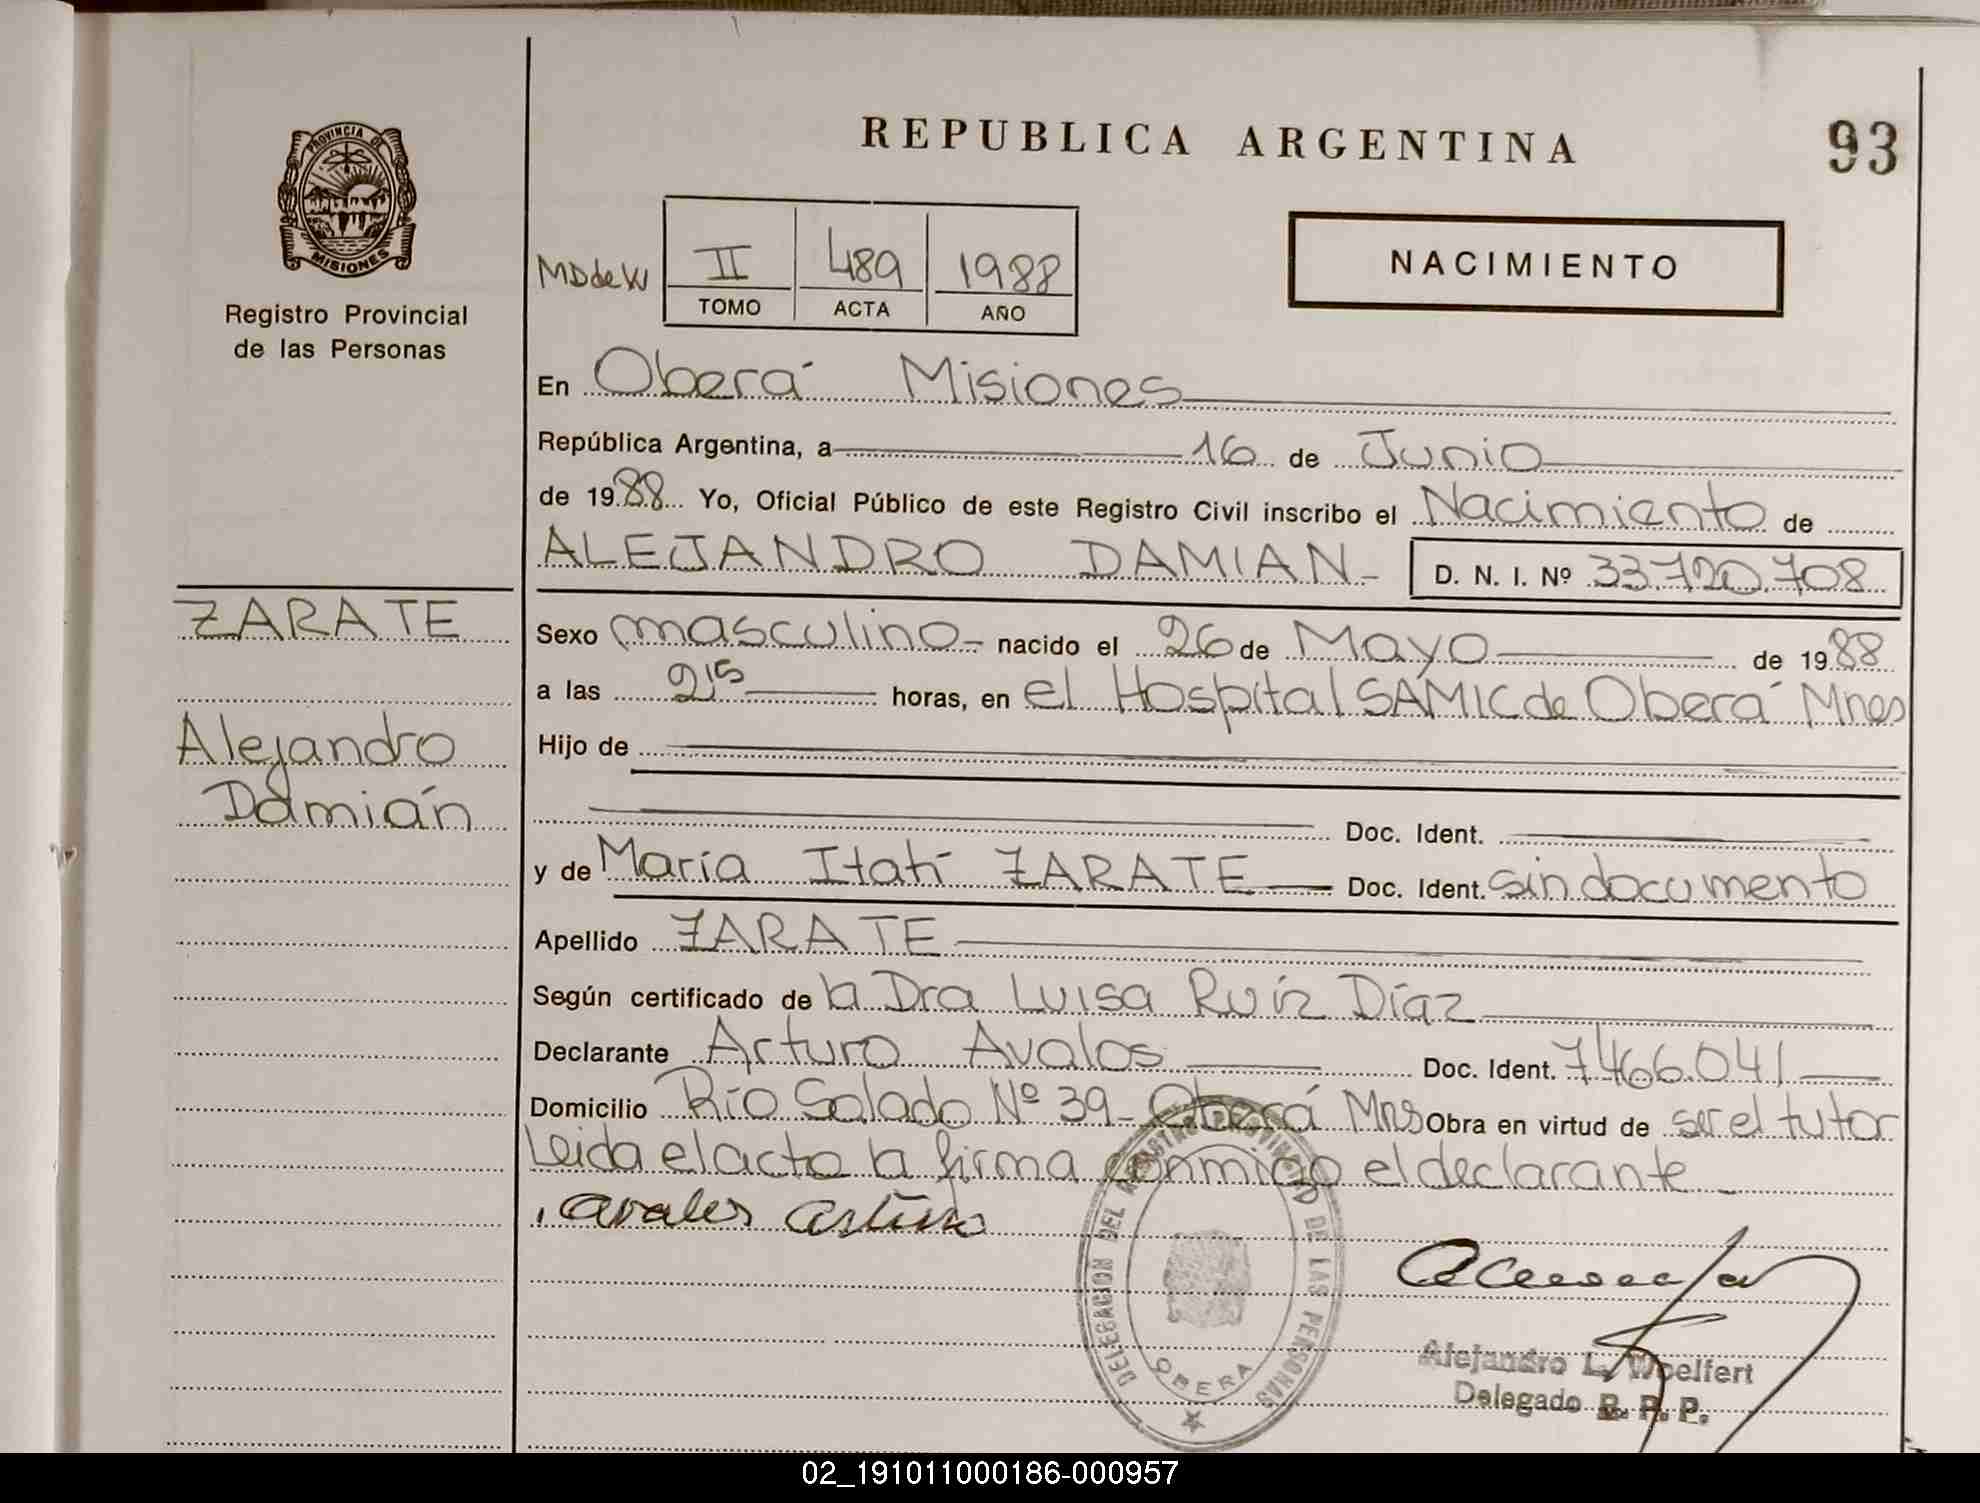 REPUBLICA ARGENTINA
93
PROVINCIA DE
MISIONES
Registro Provincial
de las Personas
MDdeW
II 489 1988
TOMO ACTA AÑO
NACIMIENTO
En Oberá Misiones
República Argentina, a 16 de Junio
de 1988 Yo, Oficial Público de este Registro Civil inscribo el Nacimiento de
ALEJANDRO DAMIAN- D. N. I. Nº 33.720.708
ZARATE
Alejandro
Damián
Sexo masculino- nacido el 26 de Mayo de 1988
a las 2,15 horas, en el Hospital SAMIC de Oberá Mnes
Hijo de
Doc. Ident.
y de María Itatí ZARATE Doc. Ident. sin documento
Apellido ZARATE
Según certificado de la Dra Luisa Ruíz Díaz
Declarante Arturo Avalos Doc. Ident. 7466.041
Domicilio Río Salado Nº 39- Oberá Mns Obra en virtud de ser el tutor
Leida el acto la firma conmigo el declarante
Avalos Arturo
DELEGACION DEL REGISTRO PROVINCIAL DE LAS PERSONAS
OBERA
Alejandro L. Woelfert
Delegado R. P. P.
02_191011000186-000957